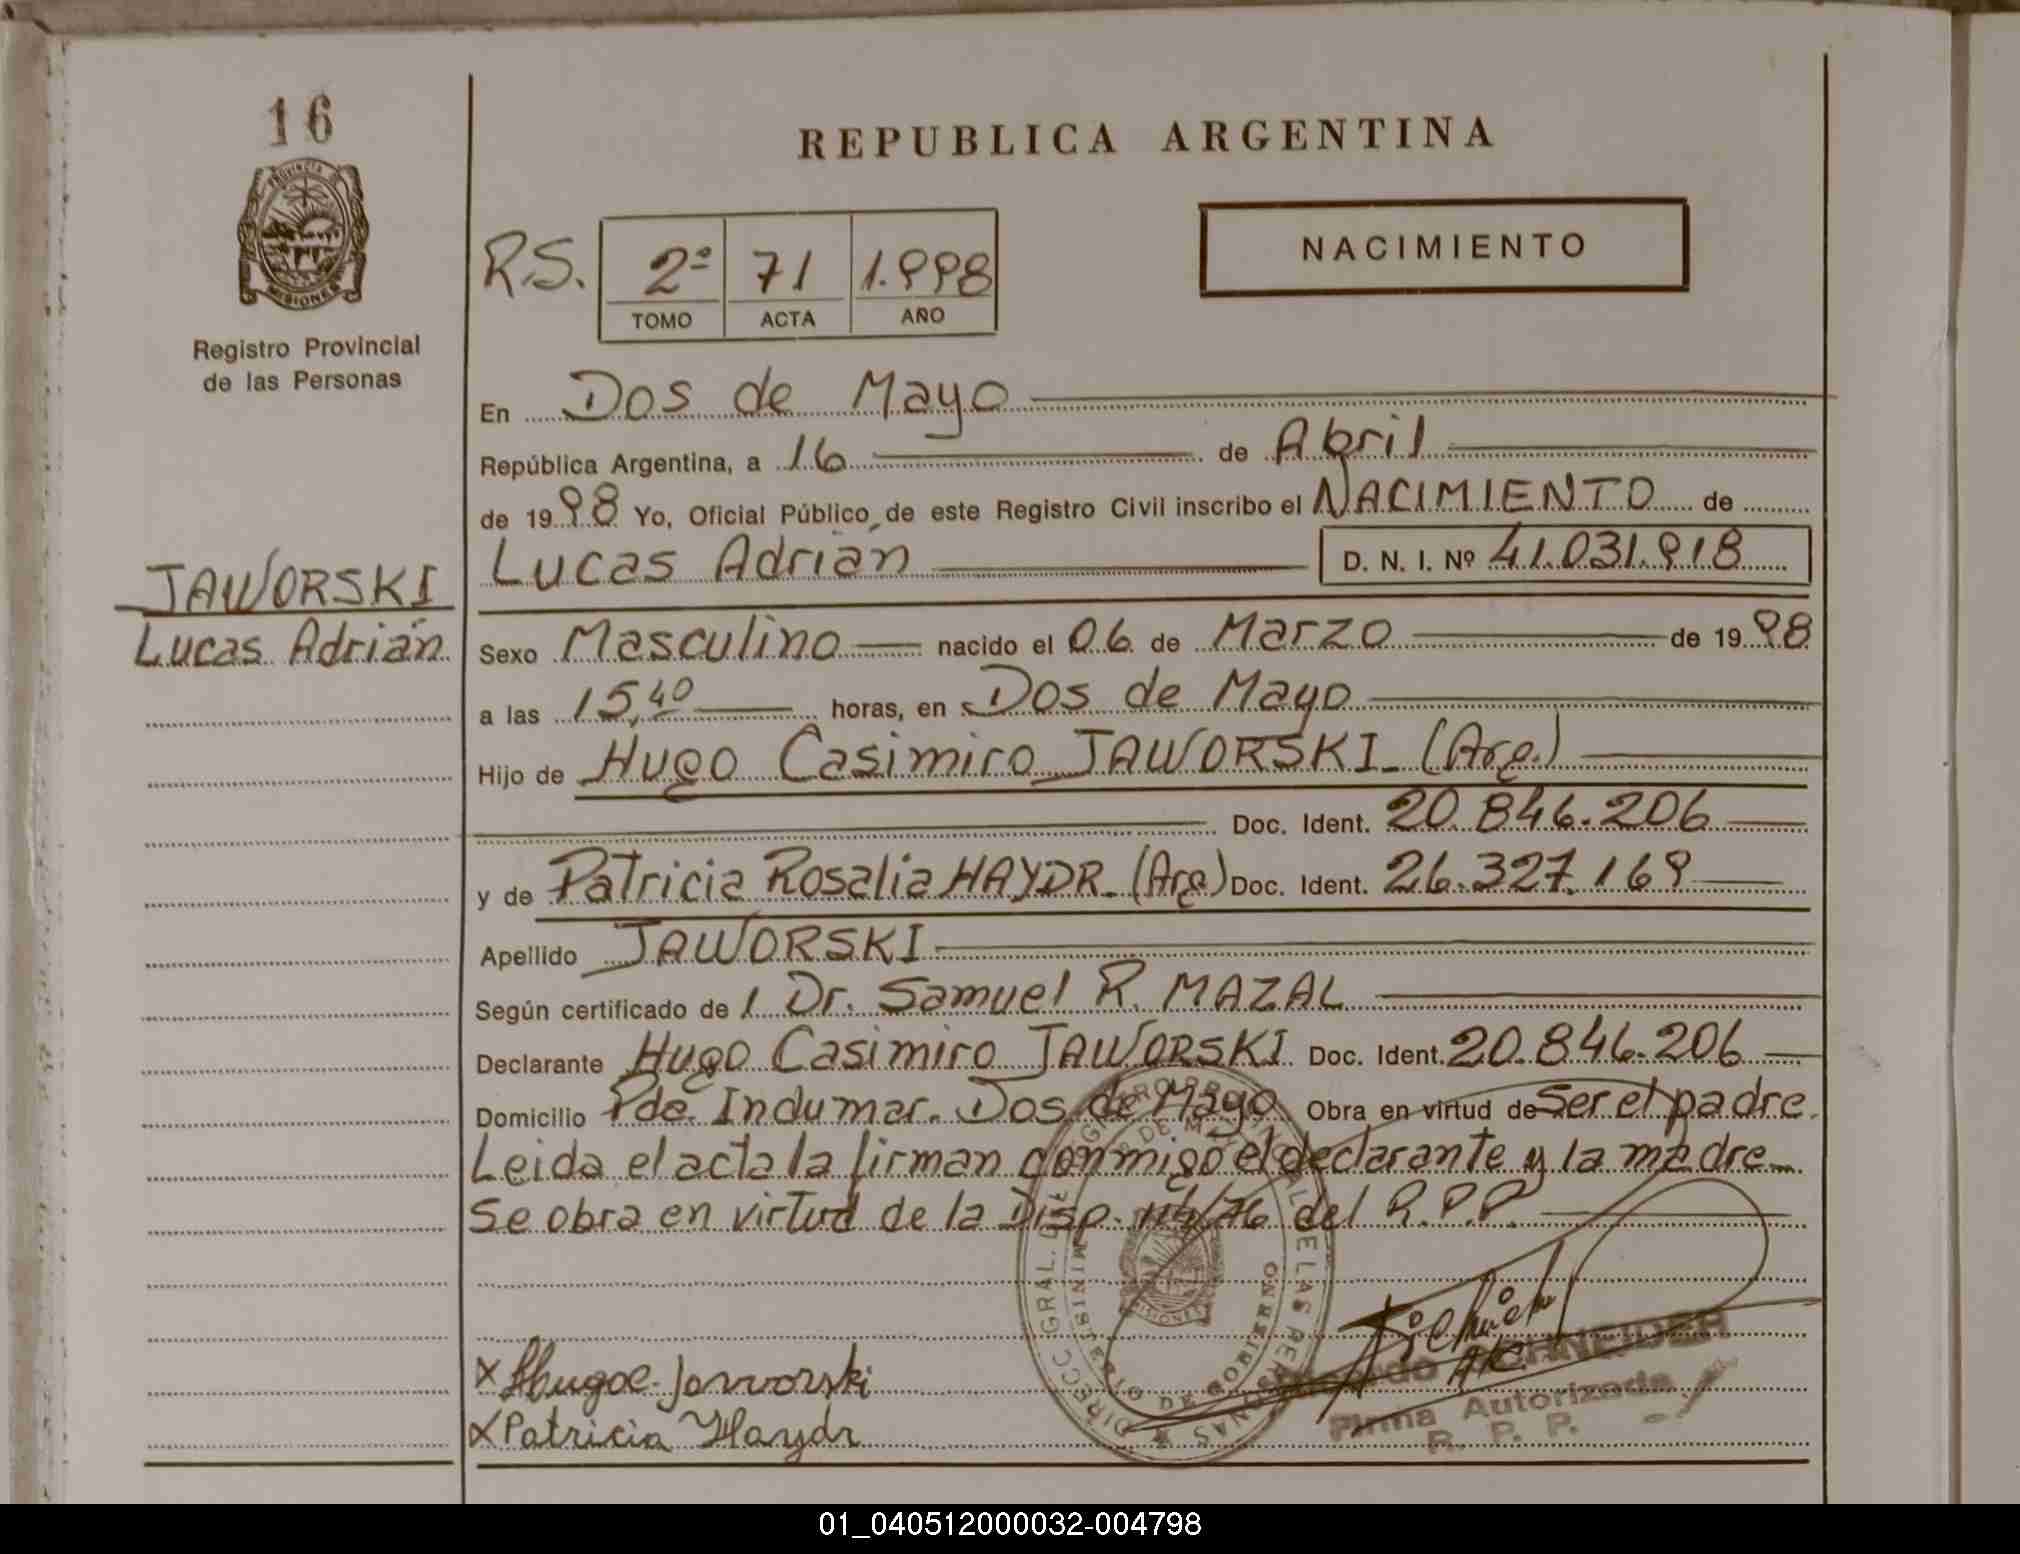 16
PROVINCIA DE
MISIONES
Registro Provincial
de las Personas
JAWORSKI
Lucas Adrián
REPUBLICA ARGENTINA
NACIMIENTO
R.S. 2º 71 1.998
TOMO ACTA AÑO
En Dos de Mayo
República Argentina, a 16 de Abril
de 1998 Yo, Oficial Público de este Registro Civil inscribo el NACIMIENTO de
Lucas Adrián D. N. I. Nº 41.031.918
Sexo Masculino nacido el 06 de Marzo de 1998
a las 15,40 horas, en Dos de Mayo
Hijo de Hugo Casimiro JAWORSKI (Arg.)
Doc. Ident. 20.846.206
y de Patricia Rosalia HAYDR (Arg) Doc. Ident. 26.327.169
Apellido JAWORSKI
Según certificado de 1 Dr. Samuel R. MAZAL
Declarante Hugo Casimiro JAWORSKI Doc. Ident. 20.846.206
Domicilio Pde. Indumar. Dos de Mayo Obra en virtud de Ser el padre.
Leida el acta la firman conmigo el declarante y la madre
Se obra en virtud de la Disp. 114/76 del R.P.P.
x Hugo C. Jaworski
x Patricia Haydr
SCHNEIDER
Firma Autorizada
R. P. P.
01_040512000032-004798